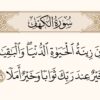 سُورَةُ الكَهْفِ
زِينَةُ ٱلْحَيَوٰةِ ٱلدُّنْيَا
خَيْرٌ عِندَ رَبِّكَ ثَوَابًا وَخَيْرٌ أَمَلًا